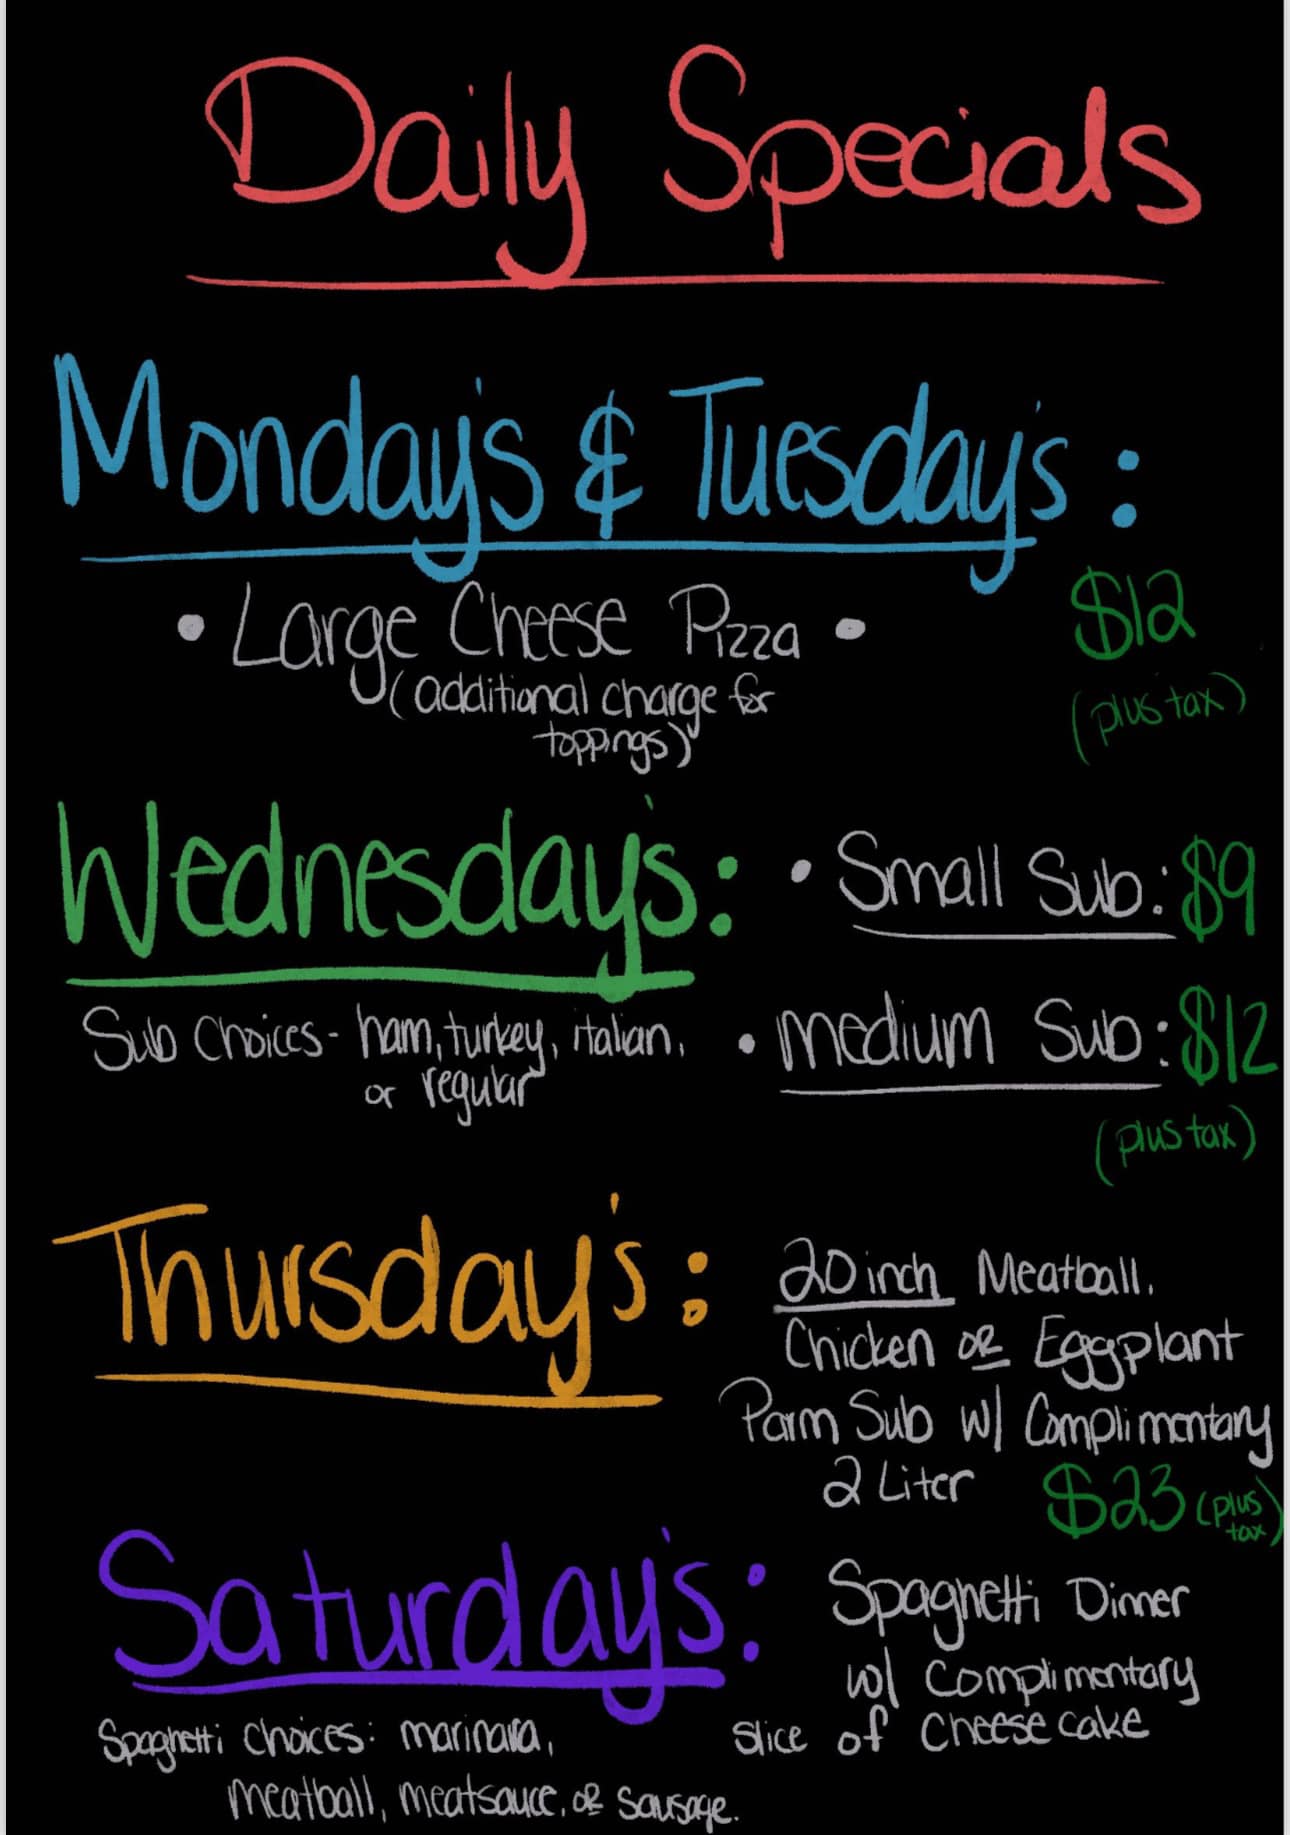 Daily Specials
Monday's & Tuesday's:
• Large Cheese Pizza •
$12
(additional charge for
toppings)
(plus tax)
Wednesday's:
• Small Sub: $9
Sub Choices - ham, turkey, italian,
or regular
• medium Sub: $12
(plus tax)
Thursday's:
20 inch Meatball,
Chicken OR Eggplant
Parm Sub w/ Complimentary
2 Liter
$23 (plus
tax)
Saturday's:
Spaghetti Dinner
w/ Complimentary
Slice of Cheesecake
Spaghetti Choices: marinara,
meatball, meatsauce, OR sausage.